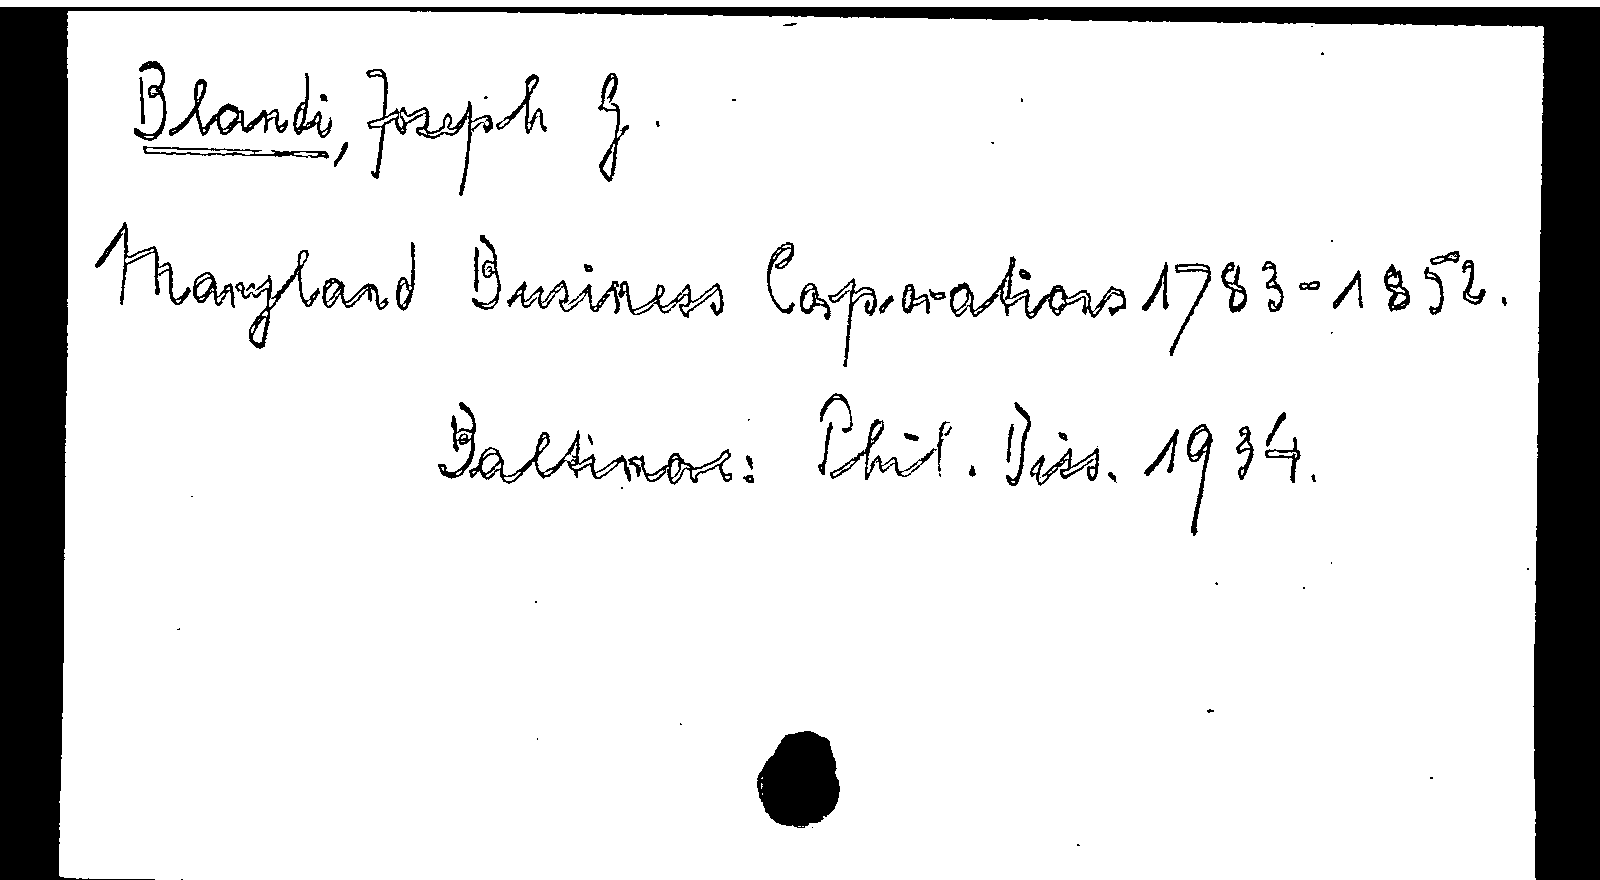 Blandi, Joseph G.
Maryland Business Corporations 1783-1852.
Baltimore: Phil. Diss. 1934.